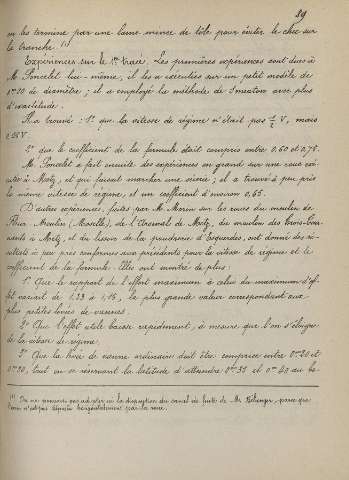 89
on les termine par une lame mince de tôle pour éviter le choc sur
la tranche. (1)
Expériences sur le 1er tracé. Les premières expériences sont dues à
M. Poncelet lui-même, il les a exécutées sur un petit modèle de
0m50 de diamètre ; il a employé la méthode de Smeaton avec plus
d'exactitude.
Il a trouvé : 1° que la vitesse de régime n'était pas 1/2 V, mais
0.55 V.
2° que le coefficient de la formule était compris entre 0.60 et 0,75.
M. Poncelet a fait ensuite des expériences en grand sur une roue
à Metz, et qui faisait marcher une scierie ; il a trouvé à peu près
la même vitesse de régime, et un coefficient d'environ 0,65.
D'autres expériences, faites par M. Morin sur les roues du moulin de
Moulin (Moselle), de l'Arsenal de Metz, du moulin des
à Metz, et au lissoir de la poudrerie d'Esquerdes, ont donné des ré-
sultats à peu près conformes aux précédents pour la vitesse de régime et le
coefficient de la formule. Elles ont montré de plus :
1° Que le rapport de l'effort maximum à celui du maximum d'ef-
fet variait de 1.33 à 1.15, la plus grande valeur correspondant aux
plus petites levées de vannes.
2° Que l'effet utile baisse rapidement, à mesure que l'on s'éloigne
de la vitesse de régime.
3° Que la levée de vanne ordinaire doit être comprise entre 0m20 et
0m30, tout en se réservant la latitude d'atteindre 0m35 et 0m40 au be-
(1) On ne pourrait pas adopter ici la disposition du canal de fuite de Mr. Bélanger, parce que
l'eau n'est pas rejetée horizontalement par la roue.